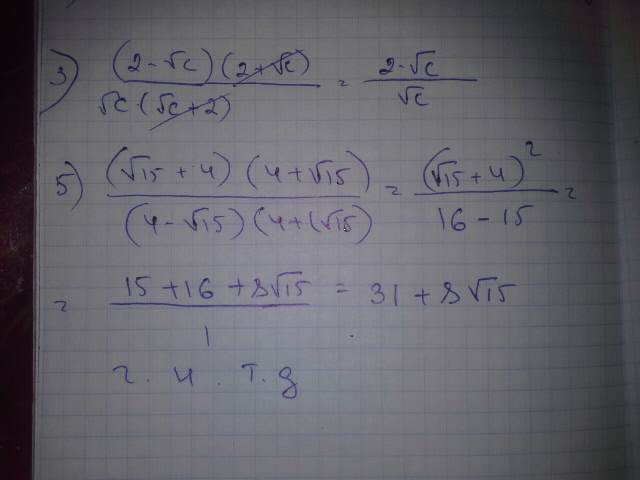 3) (2-√c)(2+√c) / √c·(√c+2) = 2-√c / √c
5) (√15+4)(4+√15) / (4-√15)(4+(√15) = (√15+4)² / 16-15 =
= 15+16+8√15 / 1 = 31+8√15
ч. и. т. д